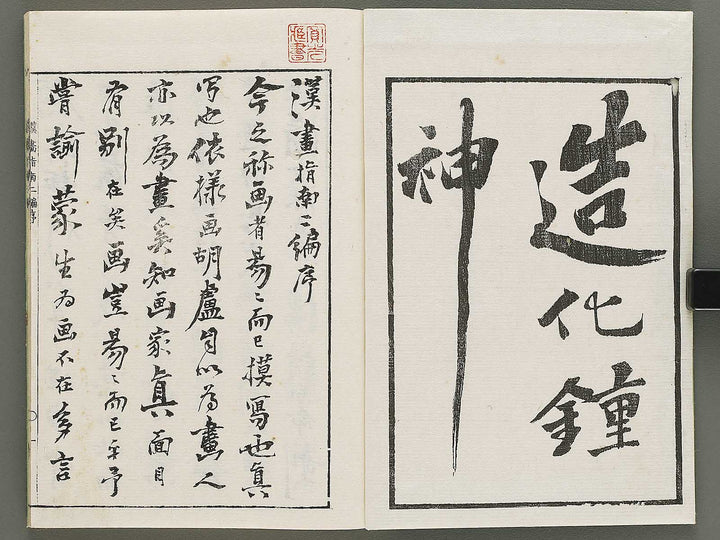 造化鍾
神
漢畫指南二編序
今之称画者昜〻而已摸寫也真
写也依様画胡盧自以為畫人
亦以為畫奚知画家真面目
有別在矣画豈昜〻而已乎予
嘗諭蒙生為画不在多言
漢畫指南二編序